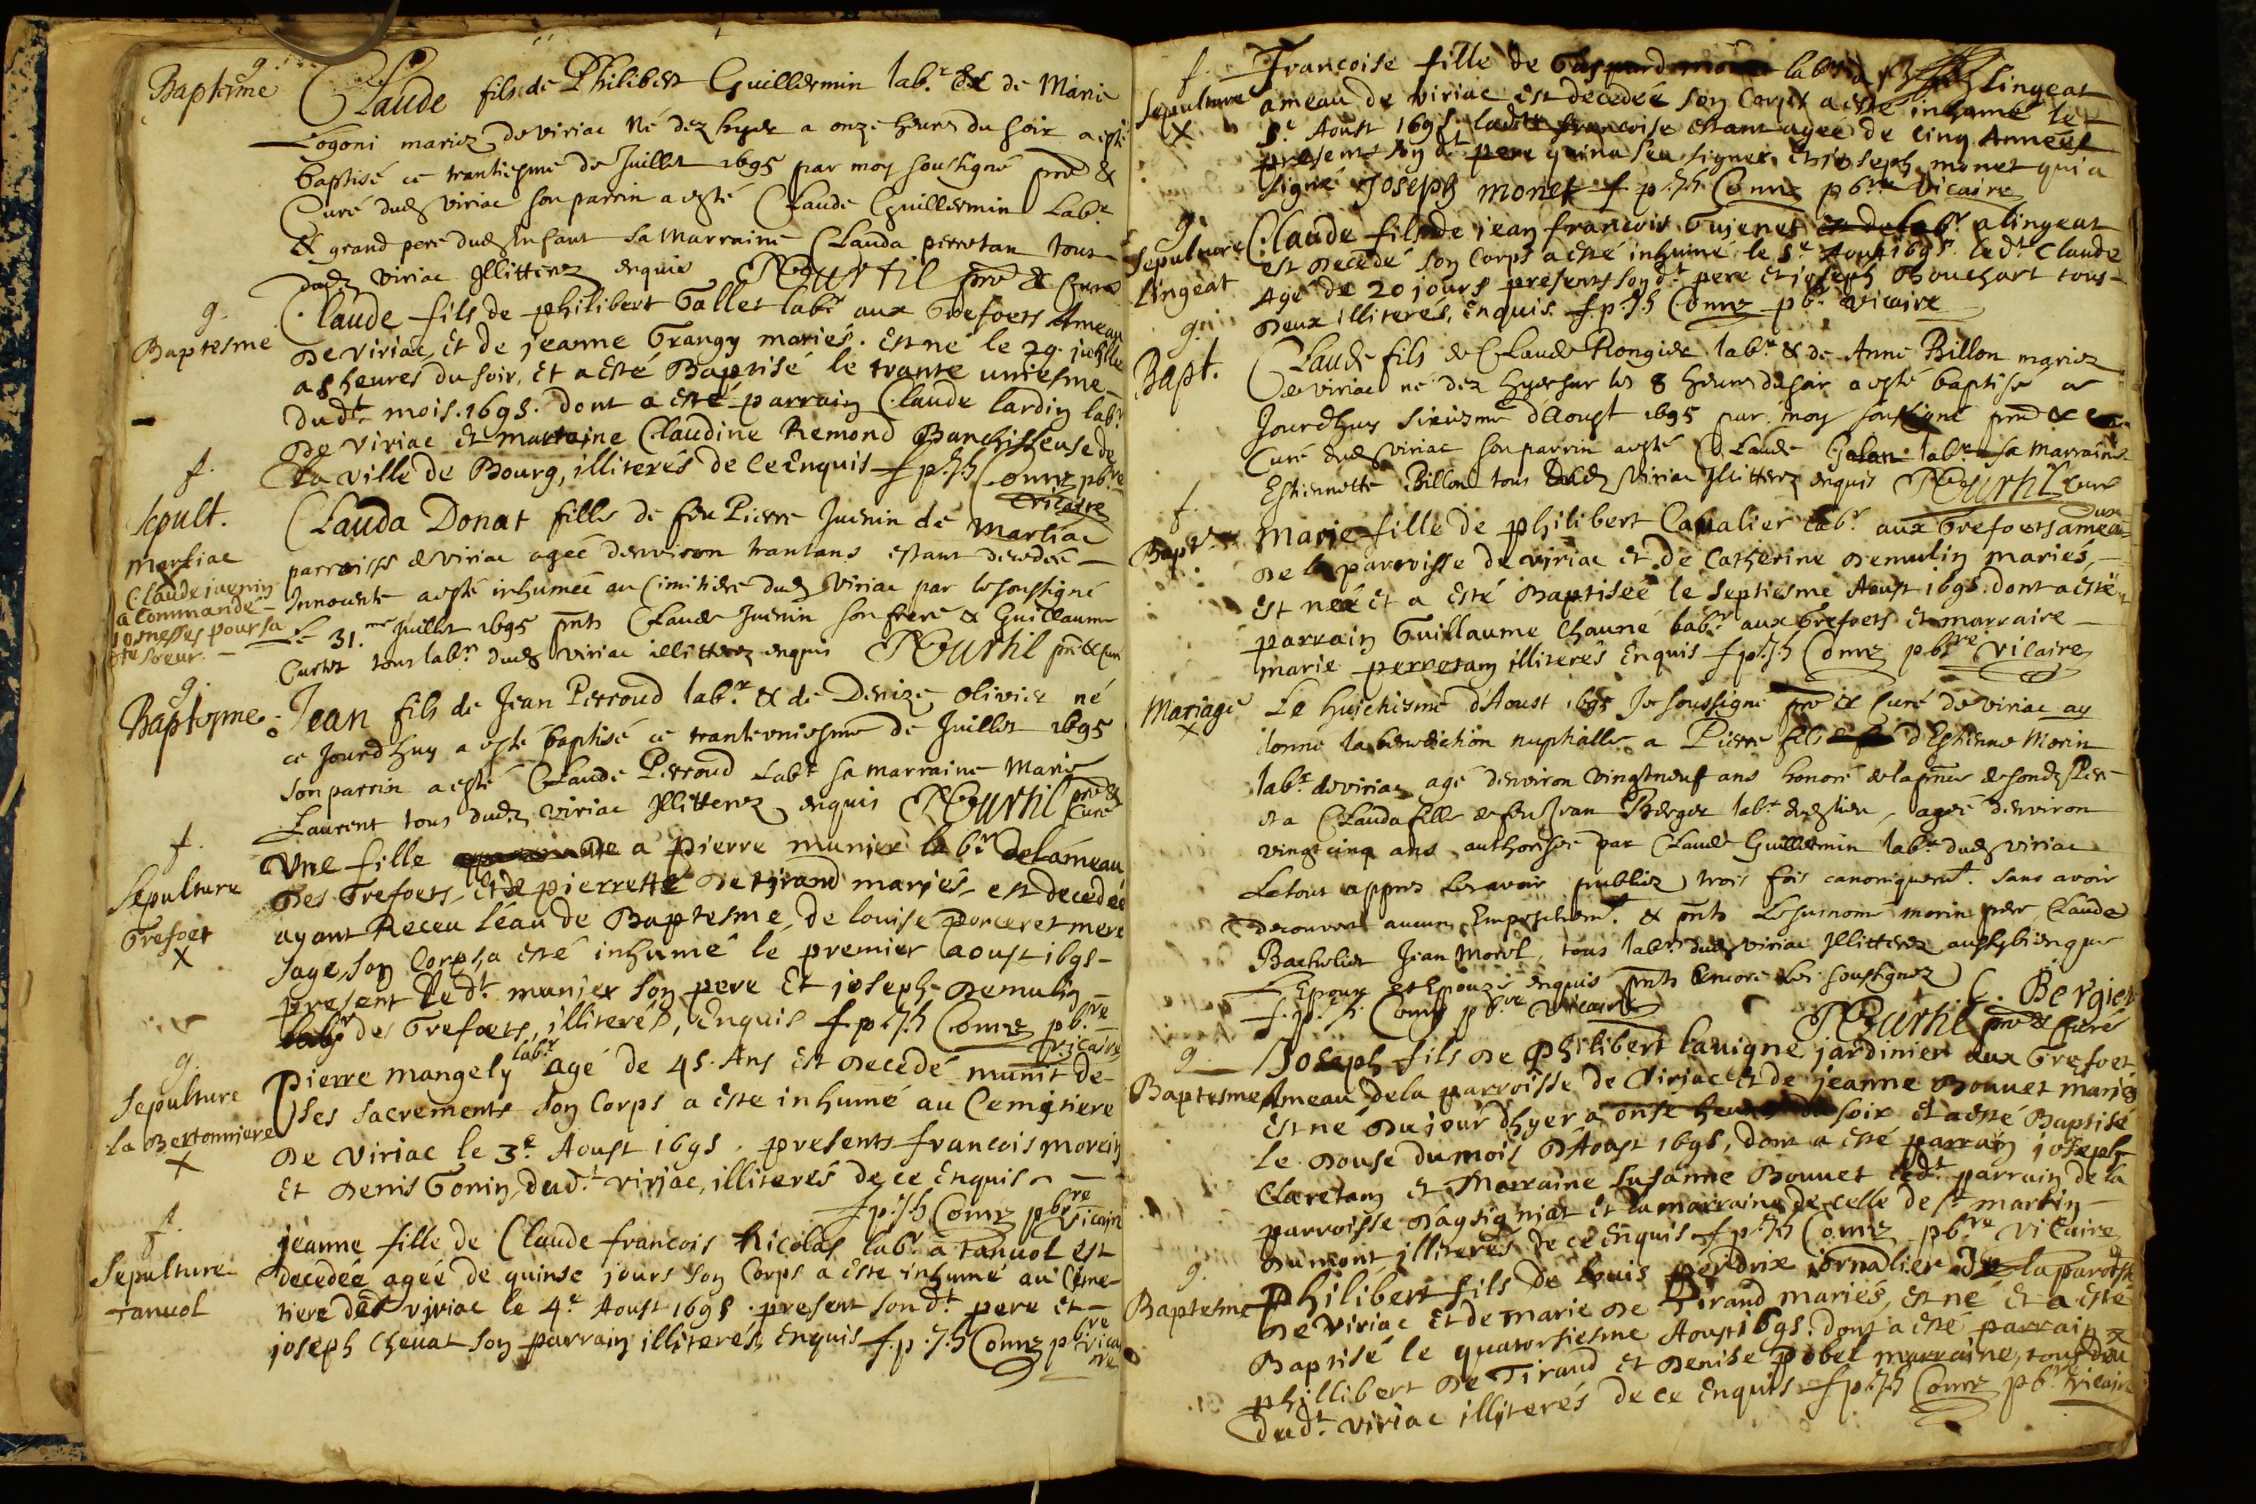 g.
Baptesme
Claude fils de Philibert Guillermin lab.r & de Marie
Logoni mariez de viriac Né dez hyer a onze heures du soir a esté
baptisé ce trantiesme de Juillet 1695 par moy soussigné &
Curé dud. viriac son parrin a esté Claude Guillermin Lab.r
& grand pere dud. Enfant sa Marraine Clauda perretan tous
dud. viriac Illitterez enquis
g.
Baptesme
Claude fils de philibert Gallet lab.r aux Grefoets Ameau
De viriac, Et de jeanne Grangy mariés. est né le 29. juillet
a 8 heures du soir, Et a esté Baptisé le trante uniesme
dud.t mois. 1695. dont a esté parrain Claude lardin lab.r
De viriac et marraine Claudine Remond Blanchisseuse de
La ville de Bourg, illiterés de ce Enquis f. p. J. h. Comte pb.re
vicaire
f.
Sepult.
Marfiac
Claude juenin
a commandé
10 messes pour sa
d.te soeur.
Clauda Donat fille de feu Pierre Juenin de Marliac
parroisse de viriac agée denviron trantans estant decedée
Innocente a esté inhumée au Cimitiere dud. Viriac par le soussigné
Le 31.me Juillet 1695 Claude Juenin son frere & Guillaume
Curtet tous lab.rs dud. viriac illitterez enquis
g.
Baptesme
Jean fils de Jean Perroud lab.r & de Denize olivier né
ce Jourdhuy a esté baptisé ce trantevniesme de Juillet 1695
son parrin a esté Claude Perroud Lab.r sa marraine Marie
Laurent tous dud. viriac Illitterez enquis
Curé
f.
Sepulture
Grefoet
x
Vne fille a pierre munier lab.r de lameau
Des Grefoets, Et de pierrette Detirand mariés est decedée
ayant Receu léau de Baptesme, de louise porceret mere
sage, son Corps a esté inhumé le premier aoust 1695
present Led.t munier son pere Et joseph Demulin
lab.r des Grefoets, illiterés, Enquis f. p. J. h. Comte pb.re
vicaire
g.
Sepulture
La Bertonniere
x
Pierre mangely lab.r agé de 45. Ans Est Decedé munit de
Ses sacrements son Corps a este inhumé au Cemitiere
De viriac le 3.e Aoust 1695. presents francois morein
Et Denis Gonin, dud.t viriac, illiterés de ce Enquis
f. p. J. h. Comte pb.re
vicaire
f.
Sepulture
Tanuol
jeanne fille de Claude francois Nicolas lab.r a Tanuol est
decedée agée de quinse jours son Corps a este inhumé au Ceme-
tiere de viriac le 4.e Aoust 1695. present sond.t pere et
joseph Cheuat son parrain illiterés, Enquis f. p. J. h. Comte pb.re vicai
re
f.
Sepulture
x
Francoise fille de Gaspard lab.r a Lingeat
ameau de viriac est decedeé son Corps a esté inhumé le
5.e Aoust 1695. lad.tte francoise estant ageé de cinq Annees
presents son d.t pere qui na seu signer, et joseph monet qui a
signé Joseph monet f. p. J. h. Comte pb.re vicaire
g.
Sepulture
Lingeat
Claude fils de jean francois Gujenet lab.r a lingeat
est Decedé son Corps a esté inhumé le 5.e Aoust 1695. led.t Claude
agé de 20 jours presents son d.t pere et joseph Bouchart tous
Deux illiterés, Enquis. f. p. J. h. Comte pb.re vicaire
g.
Bapt.
Claude fils de Claude Rongier lab.r & de Anne Billon mariez
de viriac né dez hyer sur les 8 heures du soir a esté baptisé ce
Jourdhuy sixiesme d'Aoust 1695 par moy soussigné &
Curé dud. viriac son parrin a esté Claude Galan lab.r sa Marraine
Estiennette Billon tous dud. viriac Illitterez enquis Curé
f.
Bapt.
Marie fille de philibert Caualier lab.r aux Grefoets ameau
De la parroisse de viriac et de Catherine Demulin mariés,
est neé et a esté Baptiseé le septiesme Aoust 1695. dont a esté
parrain Guillaume Chauné lab.r aux Grefoets et marraine
marie perretan illiterés Enquis f. p. J. h. Comte pb.re vicaire
Mariage
x
Le huictiesme d'Aoust 1695 Je soussigné & Curé de viriac ay
donné la benediction nuptialle a Pierre fils d'Estienne Morin
lab.r de viriac agé denviron vingtneuf ans honoré de la de son d. Pere
et a Clauda fille de feu Jean Berger lab.r dud. lieu, agée denviron
vingt cinq ans authorisée par Claude Guillermin lab.r dud. viriac
Le tout apprez les avoir publiez trois fois canoniquem.t. sans avoir
decouvert aucun Empeschem.t & Le surnomé morin pere, Claude
Bachelier Jean Morel, tous lab.rs dud. viriac Illitterez aussy bien que
L'Epoux et Epouze enquis Encore les soussignez
f. p. J. h. Comte pb.re vicaire
C. Bergier
Curé
g.
Baptesme
Joseph fils De philibert lauigne jardinier aux Grefoet
Ameau de la parroisse de Viriac et de jeanne Bonnet mariés
Est né Du jour dhyer a onse heures du soir et a esté Baptisé
Le Douse du mois D'Aoust 1695, dont a esté parrain joseph
Claretan et Marraine susanne Bonnet led.t parrain de la
parroisse d'aysigniat et la marraine de celle de s.t martin
Dumont, illiterés de ce Enquis f. p. J. h. Comte pb.re Vicaire
g.
Baptesme
Philibert fils de louis perdrix jornalier de la paroisse
De viriac et de marie De Tirand mariés, est né Et a esté
Baptisé le quatorsiesme Aoust 1695. dont a esté parrain
phillibert De Tirand et Denise pobel marraine, tous deu
dud.t viriac illiterés de ce Enquis f. p. J. h. Comte pb.re vicaire